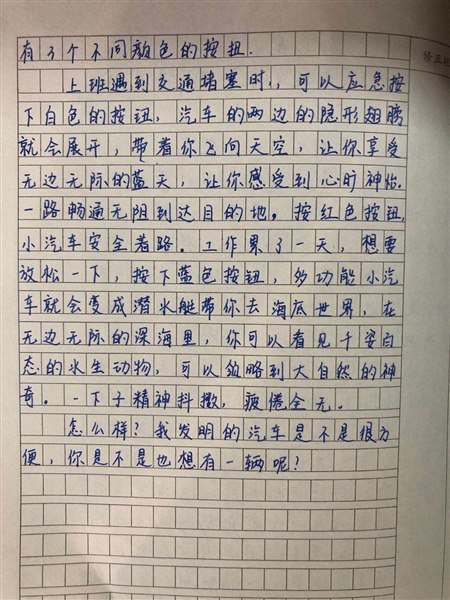 有3个不同颜色的按扭.
上班遇到交通堵塞时,,可以应急按
下白色的按钮,汽车的两边的隐形翅膀
就会展开,带着你飞向天空,让你享受
无边无际的蓝天,让你感受到心旷神怡.
一路畅通无阻到达目的地。按红色按钮,
小汽车安全着路。工作累了一天,想要
放松一下,按下蓝色按钮,多功能小汽
车就会变成潜水艇带你去海底世界,在
无边无际的深海里,你可以看见千姿百
态的水生动物,可以领略到大自然的神
奇。一下子精神抖擞,疲倦全无。
怎么样?我发明的汽车是不是很方
便,你是不是也想有一辆呢?
修正